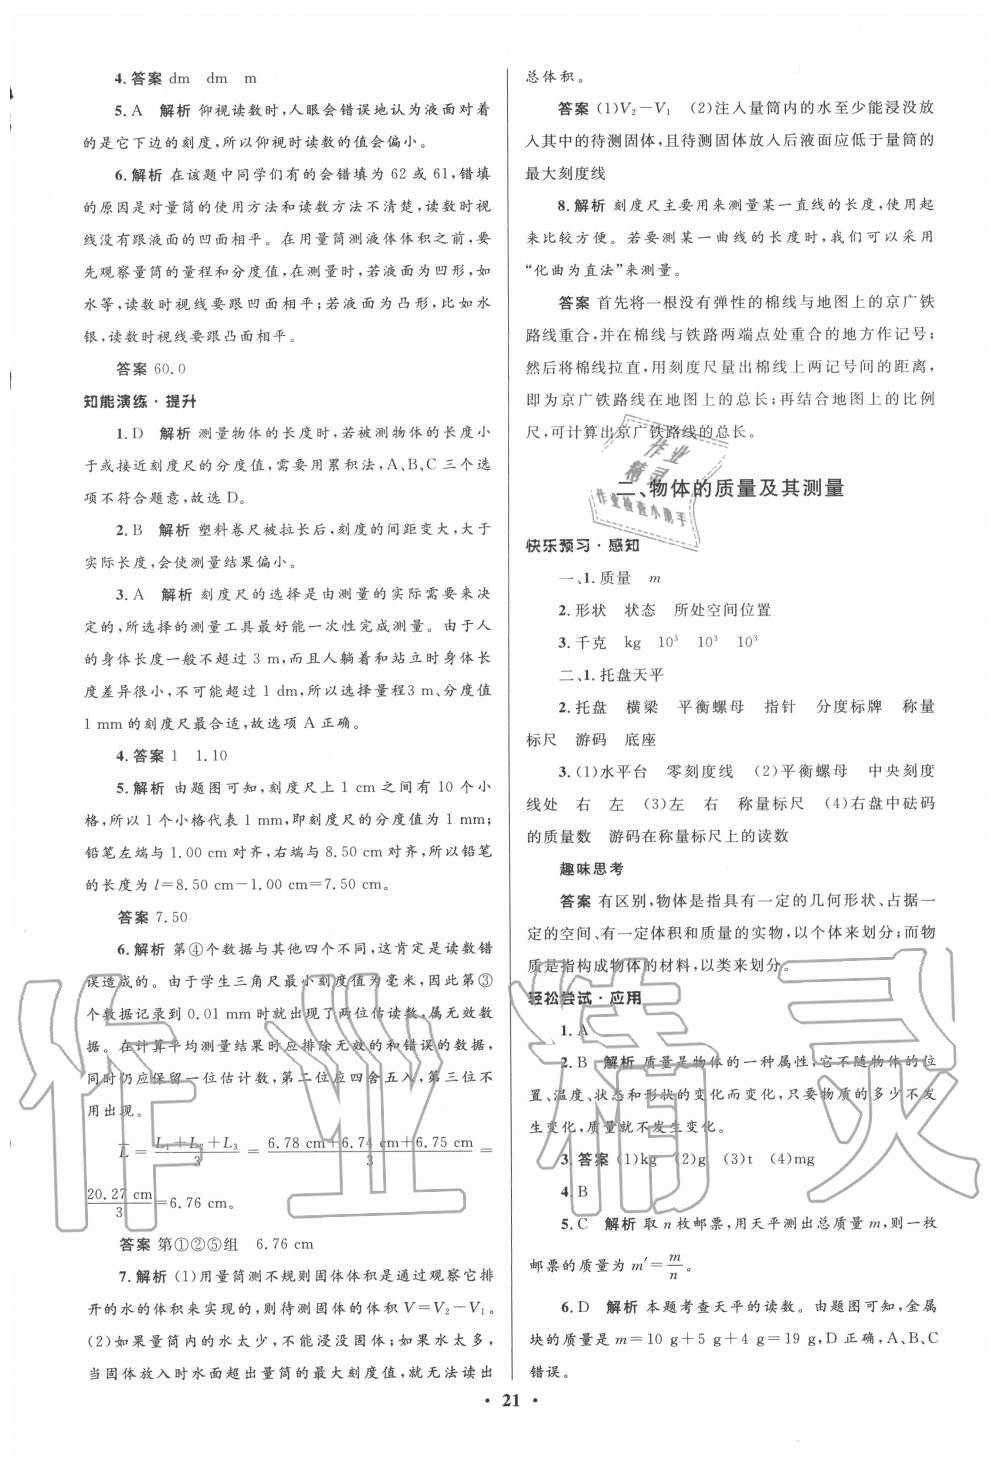 4.答案 dm dm m
5.A 解析 仰视读数时,人眼会错误地认为液面对着
的是它下边的刻度,所以仰视时读数的值会偏小。
6.解析 在该题中同学们有的会错填为 62 或 61,错填
的原因是对量筒的使用方法和读数方法不清楚,读数时视
线没有跟液面的凹面相平。在用量筒测液体体积之前,要
先观察量筒的量程和分度值,在测量时,若液面为凹形,如
水等,读数时视线要跟凹面相平;若液面为凸形,比如水
银,读数时视线要跟凸面相平。
答案 60.0
知能演练·提升
1.D 解析 测量物体的长度时,若被测物体的长度小
于或接近刻度尺的分度值,需要用累积法,A、B、C三个选
项不符合题意,故选 D。
2.B 解析 塑料卷尺被拉长后,刻度的间距变大,大于
实际长度,会使测量结果偏小。
3.A 解析 刻度尺的选择是由测量的实际需要来决
定的,所选择的测量工具最好能一次性完成测量。由于人
的身体长度一般不超过 3 m,而且人躺着和站立时身体长
度差异很小,不可能超过 1 dm,所以选择量程3 m、分度值
1 mm的刻度尺最合适,故选项 A 正确。
4.答案 1 1.10
5.解析 由题图可知,刻度尺上 1 cm之间有 10 个小
格,所以 1 个小格代表 1 mm,即刻度尺的分度值为 1 mm;
铅笔左端与 1.00 cm对齐,右端与 8.50 cm对齐,所以铅笔
的长度为 l=8.50 cm-1.00 cm=7.50 cm。
答案 7.50
6.解析 第④个数据与其他四个不同,这肯定是读数错
误造成的。由于学生三角尺最小刻度值为毫米,因此第③
个数据记录到 0.01 mm时就出现了两位估读数,属无效数
据。在计算平均测量结果时应排除无效的和错误的数据,
同时仍应保留一位估计数,第二位应四舍五入,第三位不
用出现。
L̄=(L₁+L₂+L₃)/3=(6.78 cm+6.74 cm+6.75 cm)/3=
20.27 cm/3=6.76 cm。
答案 第①②⑤组 6.76 cm
7.解析 (1)用量筒测不规则固体体积是通过观察它排
开的水的体积来实现的,则待测固体的体积 V=V₂-V₁。
(2)如果量筒内的水太少,不能浸没固体;如果水太多,
当固体放入时水面超出量筒的最大刻度值,就无法读出
总体积。
答案 (1)V₂-V₁ (2)注入量筒内的水至少能浸没放
入其中的待测固体,且待测固体放入后液面应低于量筒的
最大刻度线
8.解析 刻度尺主要用来测量某一直线的长度,使用起
来比较方便。若要测某一曲线的长度时,我们可以采用
“化曲为直法”来测量。
答案 首先将一根没有弹性的棉线与地图上的京广铁
路线重合,并在棉线与铁路两端点处重合的地方作记号;
然后将棉线拉直,用刻度尺量出棉线上两记号间的距离,
即为京广铁路线在地图上的总长;再结合地图上的比例
尺,可计算出京广铁路线的总长。
作业
精灵
作业检查小助手
二、物体的质量及其测量
快乐预习·感知
一、1.质量 m
2.形状 状态 所处空间位置
3.千克 kg 10³ 10³ 10³
二、1.托盘天平
2.托盘 横梁 平衡螺母 指针 分度标牌 称量
标尺 游码 底座
3.(1)水平台 零刻度线 (2)平衡螺母 中央刻度
线处 右 左 (3)左 右 称量标尺 (4)右盘中砝码
的质量数 游码在称量标尺上的读数
趣味思考
答案 有区别,物体是指具有一定的几何形状、占据一
定的空间、有一定体积和质量的实物,以个体来划分;而物
质是指构成物体的材料,以类来划分。
轻松尝试·应用
1.A
2.B 解析 质量是物体的一种属性,它不随物体的位
置、温度、状态和形状的变化而变化,只要物质的多少不发
生变化,质量就不发生变化。
3.答案 (1)kg (2)g (3)t (4)mg
4.B
5.C 解析 取 n 枚邮票,用天平测出总质量 m,则一枚
邮票的质量为 m′=m/n。
6.D 解析 本题考查天平的读数。由题图可知,金属
块的质量是 m=10 g+5 g+4 g=19 g,D 正确,A、B、C
错误。
作业精灵
· 21 ·